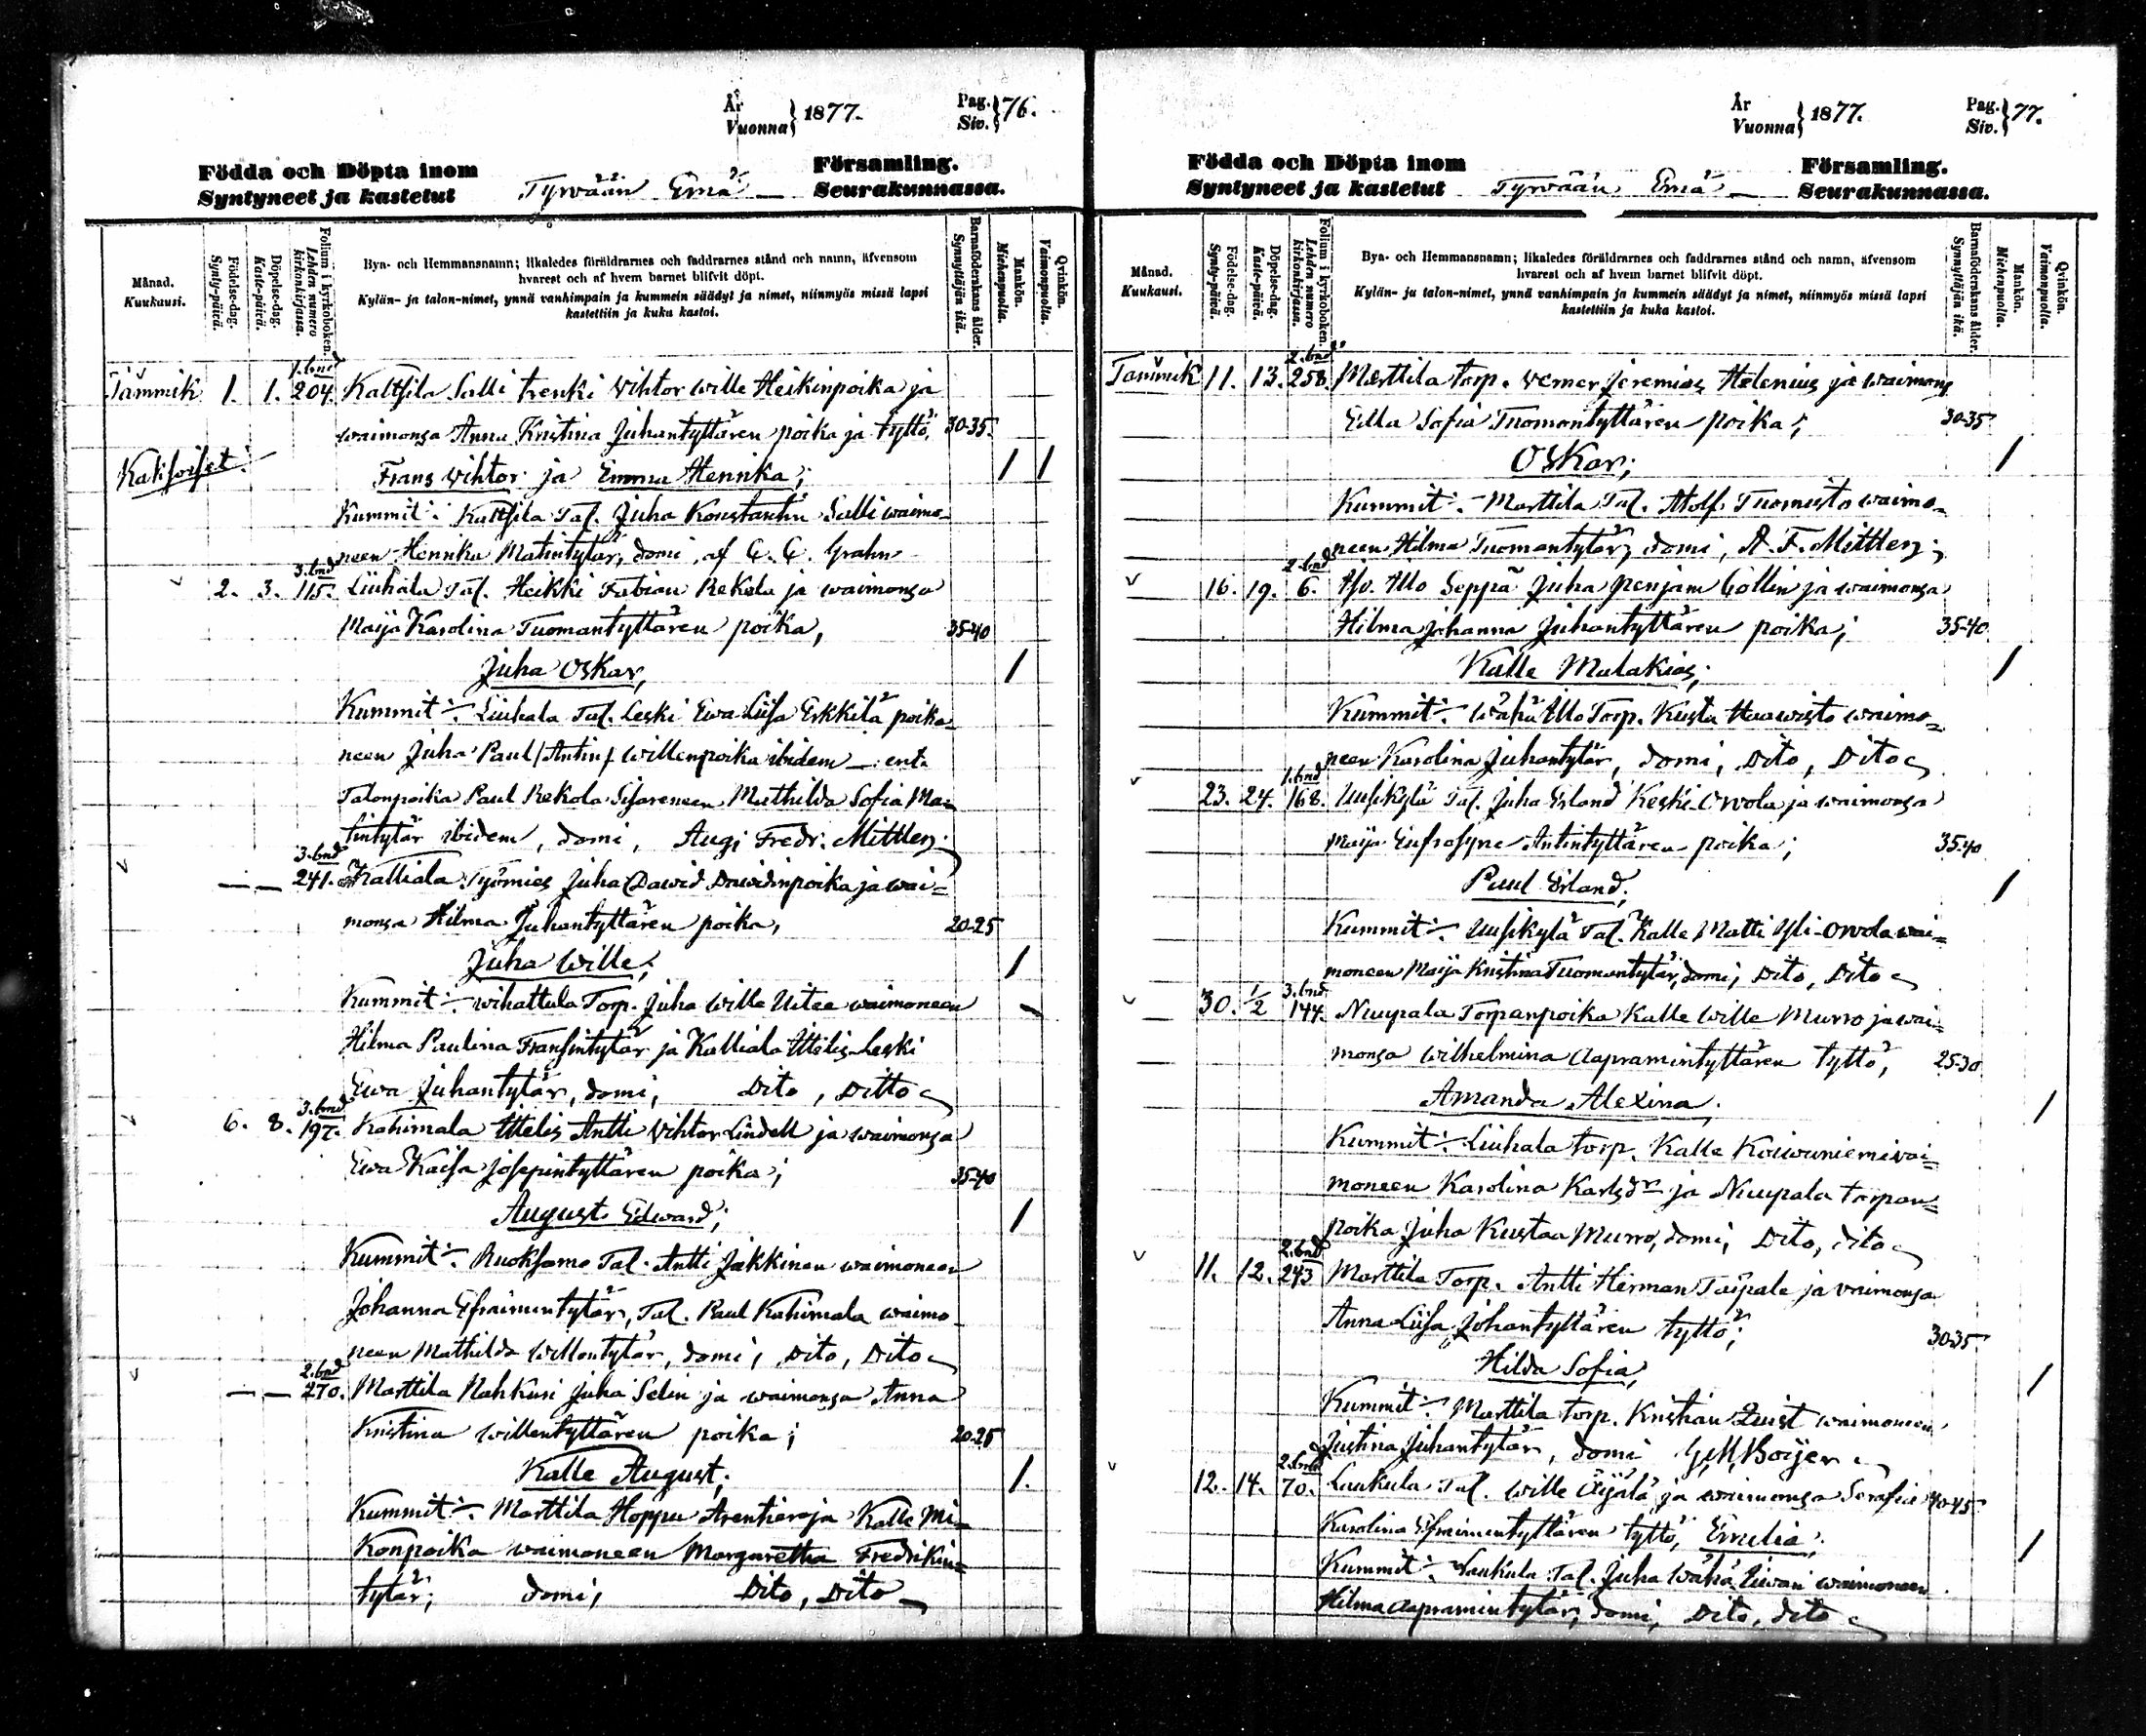 År
Vuonna } 1877.
Pag.
Siv. } 76.
Födda och Döpta inom
Syntyneet ja kastetut
Tyrvään Emä
Församling.
Seurakunnassa.
Månad.
Kuukausi.
Födelse-dag.
Synty-päivä.
Döpelse-dag.
Kaste-päivä.
Folium i kyrkoboken.
Lehden numero kirkonkirjassa.
Bya- och Hemmansnamn; likaledes föräldrarnes och faddrarnes stånd och namn, äfvensom
hvarest och af hvem barnet blifvit döpt.
Kylän- ja talon-nimet, ynnä vanhimpain ja kummein säädyt ja nimet, niinmyös missä lapsi
kastettiin ja kuka kastoi.
Barnaföderskans ålder.
Synnyttäjän ikä.
Mankön.
Miehenpuolia.
Qvinkön.
Vaimonpuolia.
1. bnd
Tammik 1. 1. 204. Kaltsila Salli trenki Vihtor Wille Heikinpoika ja
waimonsa Anna Kristina Juhantyttären poika ja tyttö, 30-35.
Kaksoiset. Frans Vihtor ja Emma Henrika; / /
Kummit: Kaltsila Tal. Juha Konstantin Salli waimo-
neen Henrika Matintytär, domi, af C. C. Grahn
3. bnd
2. 3. 115. Liuhala Tal. Heikki Fabian Rekola ja waimonsa
Maija Karolina Tuomantyttären poika, 35-40
Juha Oskar, /
Kummit: Liuhala Tal. Leski Ewa Liisa Erkkilä poika
neen Juha Paul /Antin/ Willenpoika ibidem — ent.
Talonpoika Paul Rekola Sisareneen Mathilda Sofia Ma-
tintytär ibidem, domi, Aug; Fredr. Mittler;
3. bnd
— — 241. Kalliala Työmies Juha Dawid Dawidinpoika ja wai-
monsa Hilma Juhantyttären poika, 20-25
Juha Wille; /
Kummit: Wihattula Torp. Juha Wille Uitee waimoneen
Hilma Paulina Fransintytär ja Kalliala Itselis Leski
Ewa Juhantytär, domi; Dito, Ditto
3. bnd
6. 8. 197. Kahimala Itselis Antti Vihtor Lindell ja waimonsa
Ewa Kaisa Josepintyttären poika; 35-40
August Edward; /
Kummit: Ruoksamo Tal. Antti Jakkinen waimoneen
Johanna Efraimintytär, Tal. Paul Kahimala waimo
neen Mathilda Willentytär, domi; Dito, Dito
2. bnd
— — 270. Marttila Nahkuri Juha Selin ja waimonsa Anna
Kristina Willentyttären poika; 20-25
Kalle August; /.
Kummit: Marttila Hoppu Arentieraja Kalle Mi-
konpoika waimoneen Margaretha Fredrikin-
tytär; domi; Dito, Dito
År
Vuonna } 1877.
Pag.
Siv. } 77.
Födda och Döpta inom
Syntyneet ja kastetut
Tyrvään Emä
Församling.
Seurakunnassa.
Månad.
Kuukausi.
Födelse-dag.
Synty-päivä.
Döpelse-dag.
Kaste-päivä.
Folium i kyrkoboken.
Lehden numero kirkonkirjassa.
Bya- och Hemmansnamn; likaledes föräldrarnes och faddrarnes stånd och namn, äfvensom
hvarest och af hvem barnet blifvit döpt.
Kylän- ja talon-nimet, ynnä vanhimpain ja kummein säädyt ja nimet, niinmyös missä lapsi
kastettiin ja kuka kastoi.
Barnaföderskans ålder.
Synnyttäjän ikä.
Mankön.
Miehenpuolia.
Qvinkön.
Vaimonpuolia.
2. bnd
Tammik 11. 13. 258. Marttila torp. Verner Jeremias Helenius ja waimons
Edla Sofia Tuomontyttären poika; 30-35
Oskar; /
Kummit: Marttila Tal. Atolf Tuomisto waimo-
neen Hilma Tuomantytär, domi, A. F. Mittler;
2. bnd
16. 19. 6. Illo Seppä Juha Penjam Collin ja waimonsa
Hilma Johanna Juhantyttären poika; 35-40
Kalle Malakias; /
Kummit: Wähä Illo Torp. Kusta Haawisto waimo-
neen Karolina Juhantytär, domi, Dito, Dito
1. bnd
23. 24. 168. Uusikylä Tal. Juha Erland Keski Orvola ja waimonsa
Maija Eufrosyne Antintyttären poika; 35-40
Paul Erland; /
Kummit: Uusikylä Tal. Kalle Matti Yli-Orvola wai-
moneen Maija Kristina Tuomantytär, domi; Dito, Dito
3. bnd
30. 1/2 144. Nuupala Torpanpoika Kalle Wille Murro ja wai-
monsa Wilhelmina Aapramintyttären tyttö, 25-30
Amanda Alexina; /
Kummit: Liuhala torp. Kalle Koiwuniemi wai-
moneen Karolina Karlsdr ja Nuupala torpan-
poika Juha Kustaa Murro, domi, Dito, dito
2. bnd
11. 12. 243 Marttila Torp. Antti Herman Taipale ja vaimonsa
Anna Liisa Johantyttären tyttö; 30-35
Hilda Sofia, /
Kummit: Marttila torp. Kristian Quist waimoneen
Justina Juhantytär, domi G. M. Boijer
2. bnd
12. 14. 70. Laukula Tal. Wille Äijälä ja waimonsa Serafia 40-45
Karolina Efraimintyttären tyttö, Emelia; /
Kummit: Laukula Tal. Juha Wähä Eiwari waimoneen
Hilma Aapramintytär, domi, Dito, dito